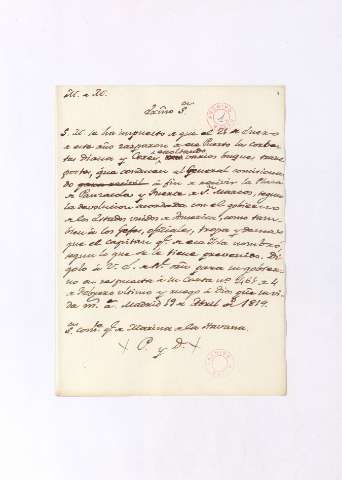 M. a M.
Exmo Sr.
S. M. se ha impuesto a que el 28 de Enero
a este año zarparon a ese Puerto las corbe-
tas Diana y Ceres, escoltando varios buques trans-
portes, que conducen al General comisiona-
do a fin a recibir la Plaza
de Panzacola y Fuerte a Sn. Marcos segun
la devolucion acordada con el gobierno
a los Estados unidos a America, como tam-
bien a los Gefes, oficiales, tropa y demas
que el capitan gl. a esa Isla nombró,
segun lo que se le tiene prevenido. Dí-
golo a V. E. a Rl. orn para su gobier-
no en respuesta a su Carta no. 461 a 4
a Febrero ultimo y ruego a Dios gue su vi-
da ms. as. Madrid 19 de Abril de 1819.
Sor. comte. gl. a Marina a la Havana.
P. y D.